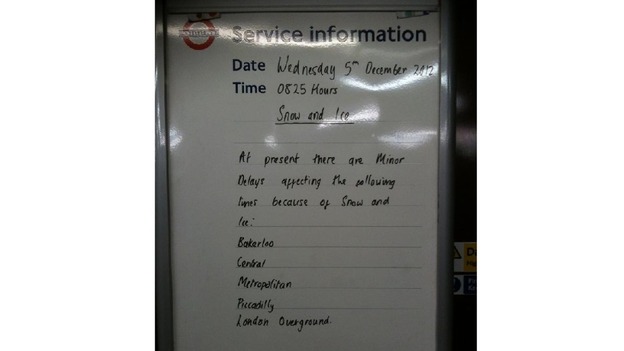 Service information
Date Wednesday 5th December 2012
Time 0825 Hours
Snow and Ice
At present there are Minor
Delays affecting the following
lines because of Snow and
Ice:
Bakerloo
Central
Metropolitan
Piccadilly
London Overground.